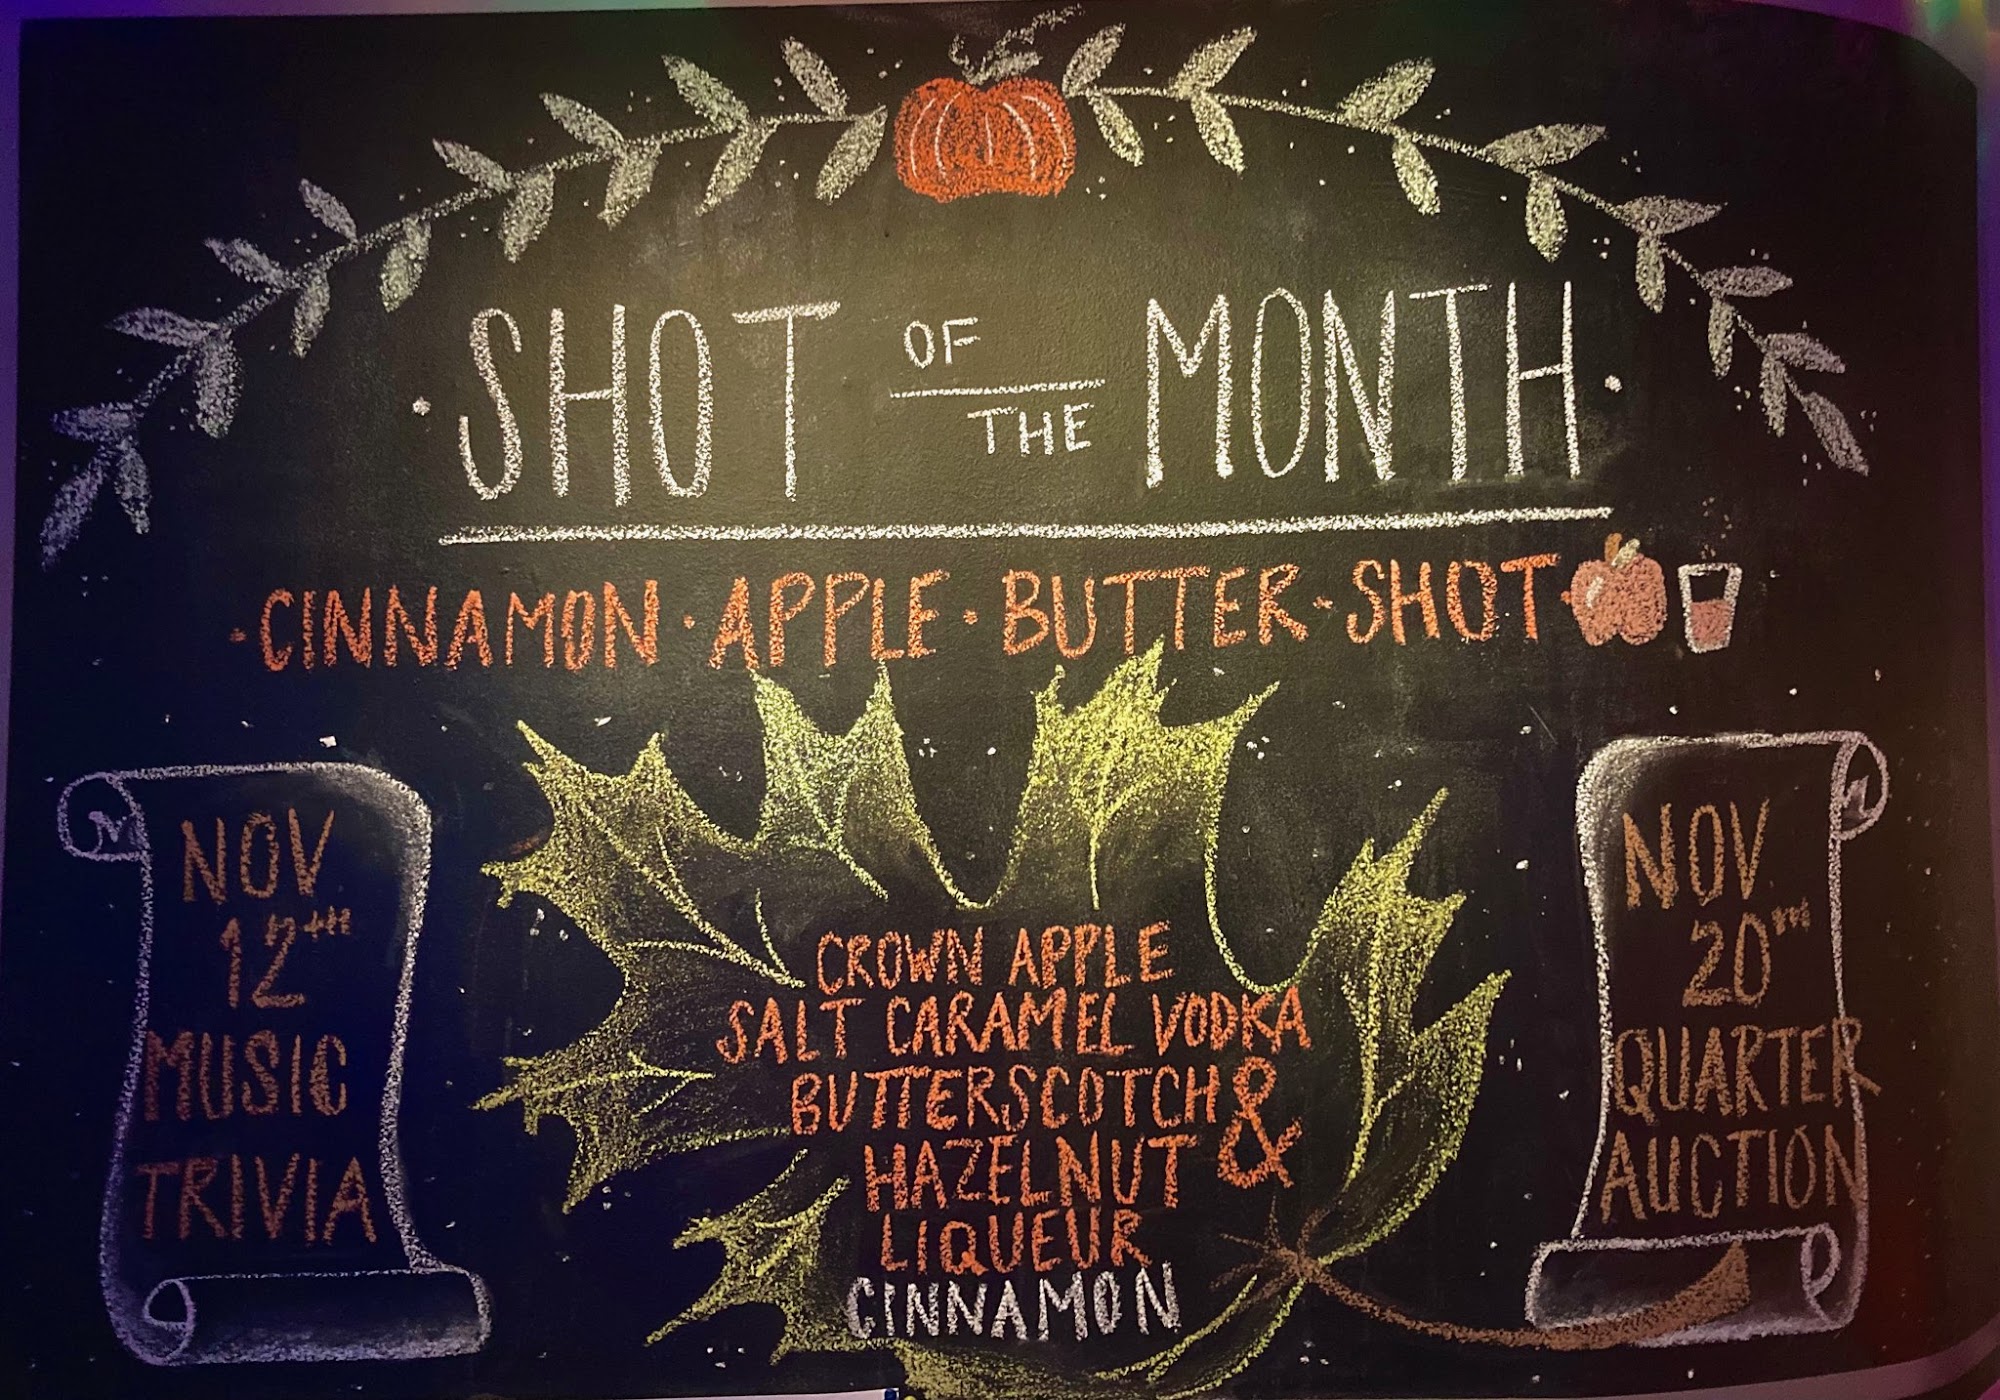 ·SHOT OF THE MONTH·
·CINNAMON·APPLE·BUTTER·SHOT·
NOV
12TH
MUSIC
TRIVIA
CROWN APPLE
SALT CARAMEL VODKA
BUTTERSCOTCH &
HAZELNUT
LIQUEUR
CINNAMON
NOV
20TH
QUARTER
AUCTION